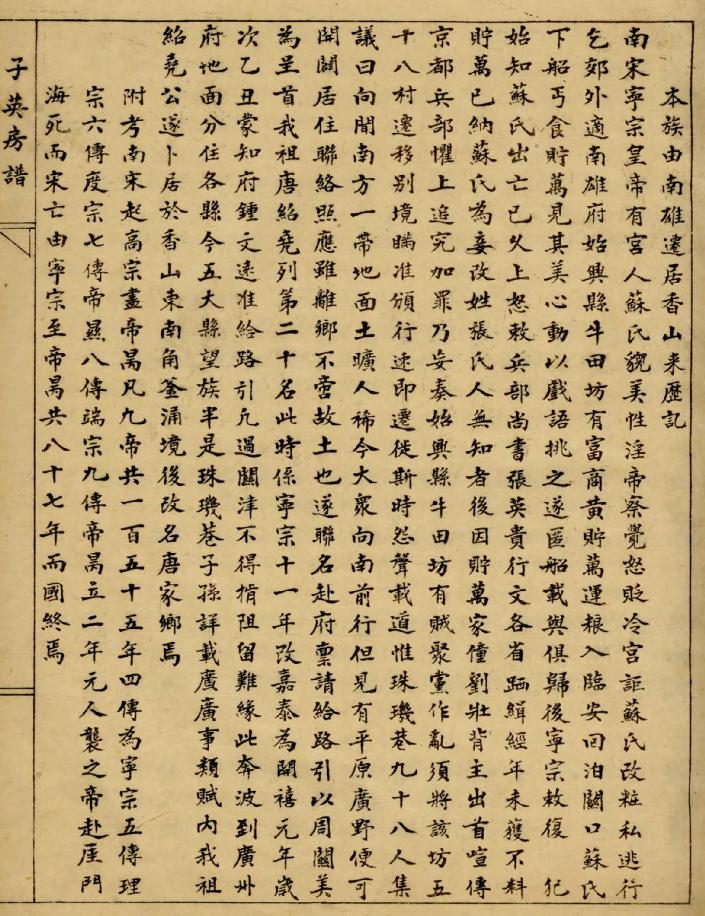 本族由南雄遷居香山来歷記
南宋寧宗皇帝有宮人蘇氏貌美性淫帝察覺怒貶冷宮詎蘇氏改粧私逃行
乞郊外適南雄府始興縣牛田坊有富商黃貯萬運粮入臨安回泊關口蘇氏
下船丐食貯萬見其美心動以戲語挑之遂匿船載與俱歸後寧宗敕復 犯
始知蘇氏出亡已久上怒敕兵部尚書張英貴行文各省跴緝經年未獲不料
貯萬已納蘇氏為妾改姓張氏人無知者後因貯萬家僮劉壯背主出首喧傳
京都兵部懼上追究加罪乃妄奏始興縣牛田坊有賊聚黨作亂須將該坊五
十八村遷移別境瞞准頒行速即遷徙斯時怨聲載道惟珠璣巷九十八人集
議曰向聞南方一帶地面土曠人稀今大衆向南前行但見有平原廣野便可
開闢居住聯絡照應雖離鄉不啻故土也遂聯名赴府禀請給路引以周關美
為呈首我祖唐紹堯列第二十名此時係寧宗十一年改嘉泰為開禧元年歲
次乙丑蒙知府鍾文達准給路引凢過關津不得揹阻留難緣此奔波到廣州
府地面分住各縣今五大縣望族半是珠璣巷子孫詳載廣廣事類賦内我祖
紹堯公遂卜居於香山東南角釜涌境後改名唐家鄉焉
附考南宋起高宗盡帝昺凡九帝共一百五十五年四傳為寧宗五傳理
宗六傳度宗七傳帝㬎八傳端宗九傳帝昺立二年元人襲之帝赴厓門
海死而宋亡由寧宗至帝昺共八十七年而國終焉
子英房譜